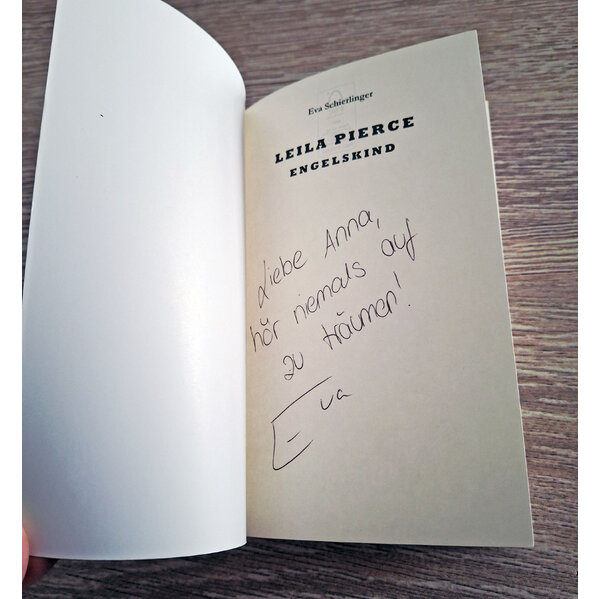 Eva Schierlinger
LEILA PIERCE
ENGELSKIND
Liebe Anna,
hör niemals auf
zu träumen!
Eva